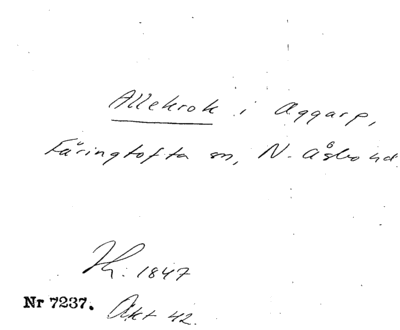 Allekrok i Aggarp,
Färingtofta sn, N. Åsbo hd
Th. 1847
Nr 7237. Akt 42.